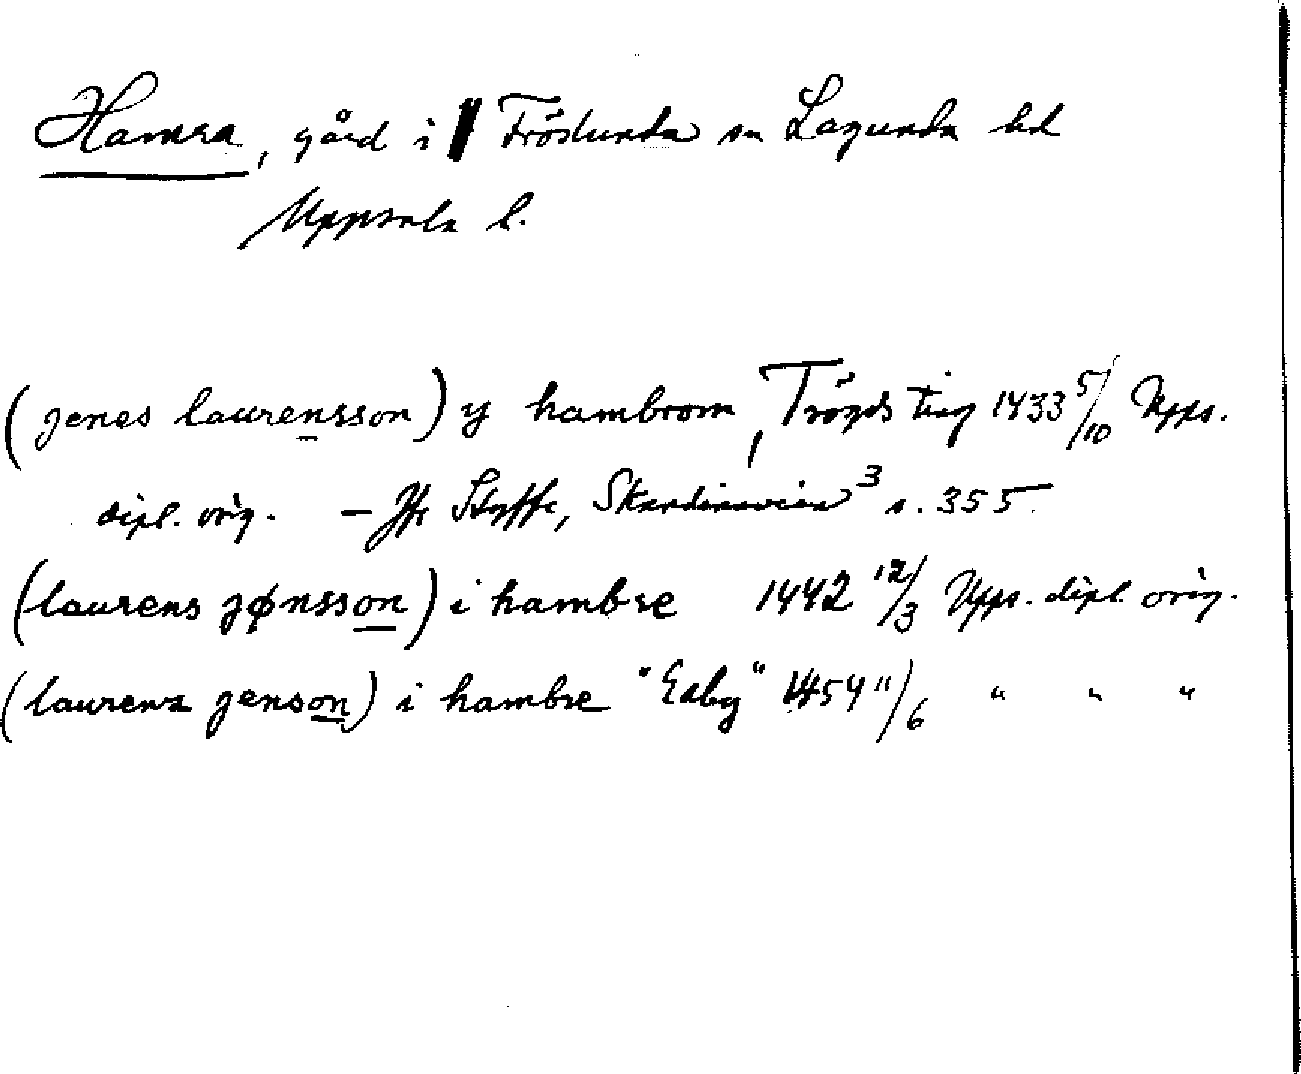 Hamra, gård i Fröslunda sn Lagunda hd
Uppsala l.
(jenes laurensson) y hambrom, Trögds ting 1433 5/10 Upps.
dipl. orig. – Jfr Styffe, Skandinavien³ s. 355.
(laurens jønsson) i hambre 1442 12/3 Upps. dipl. orig.
(laurens jenson) i hambre "Edby" 1454 11/6 " " "